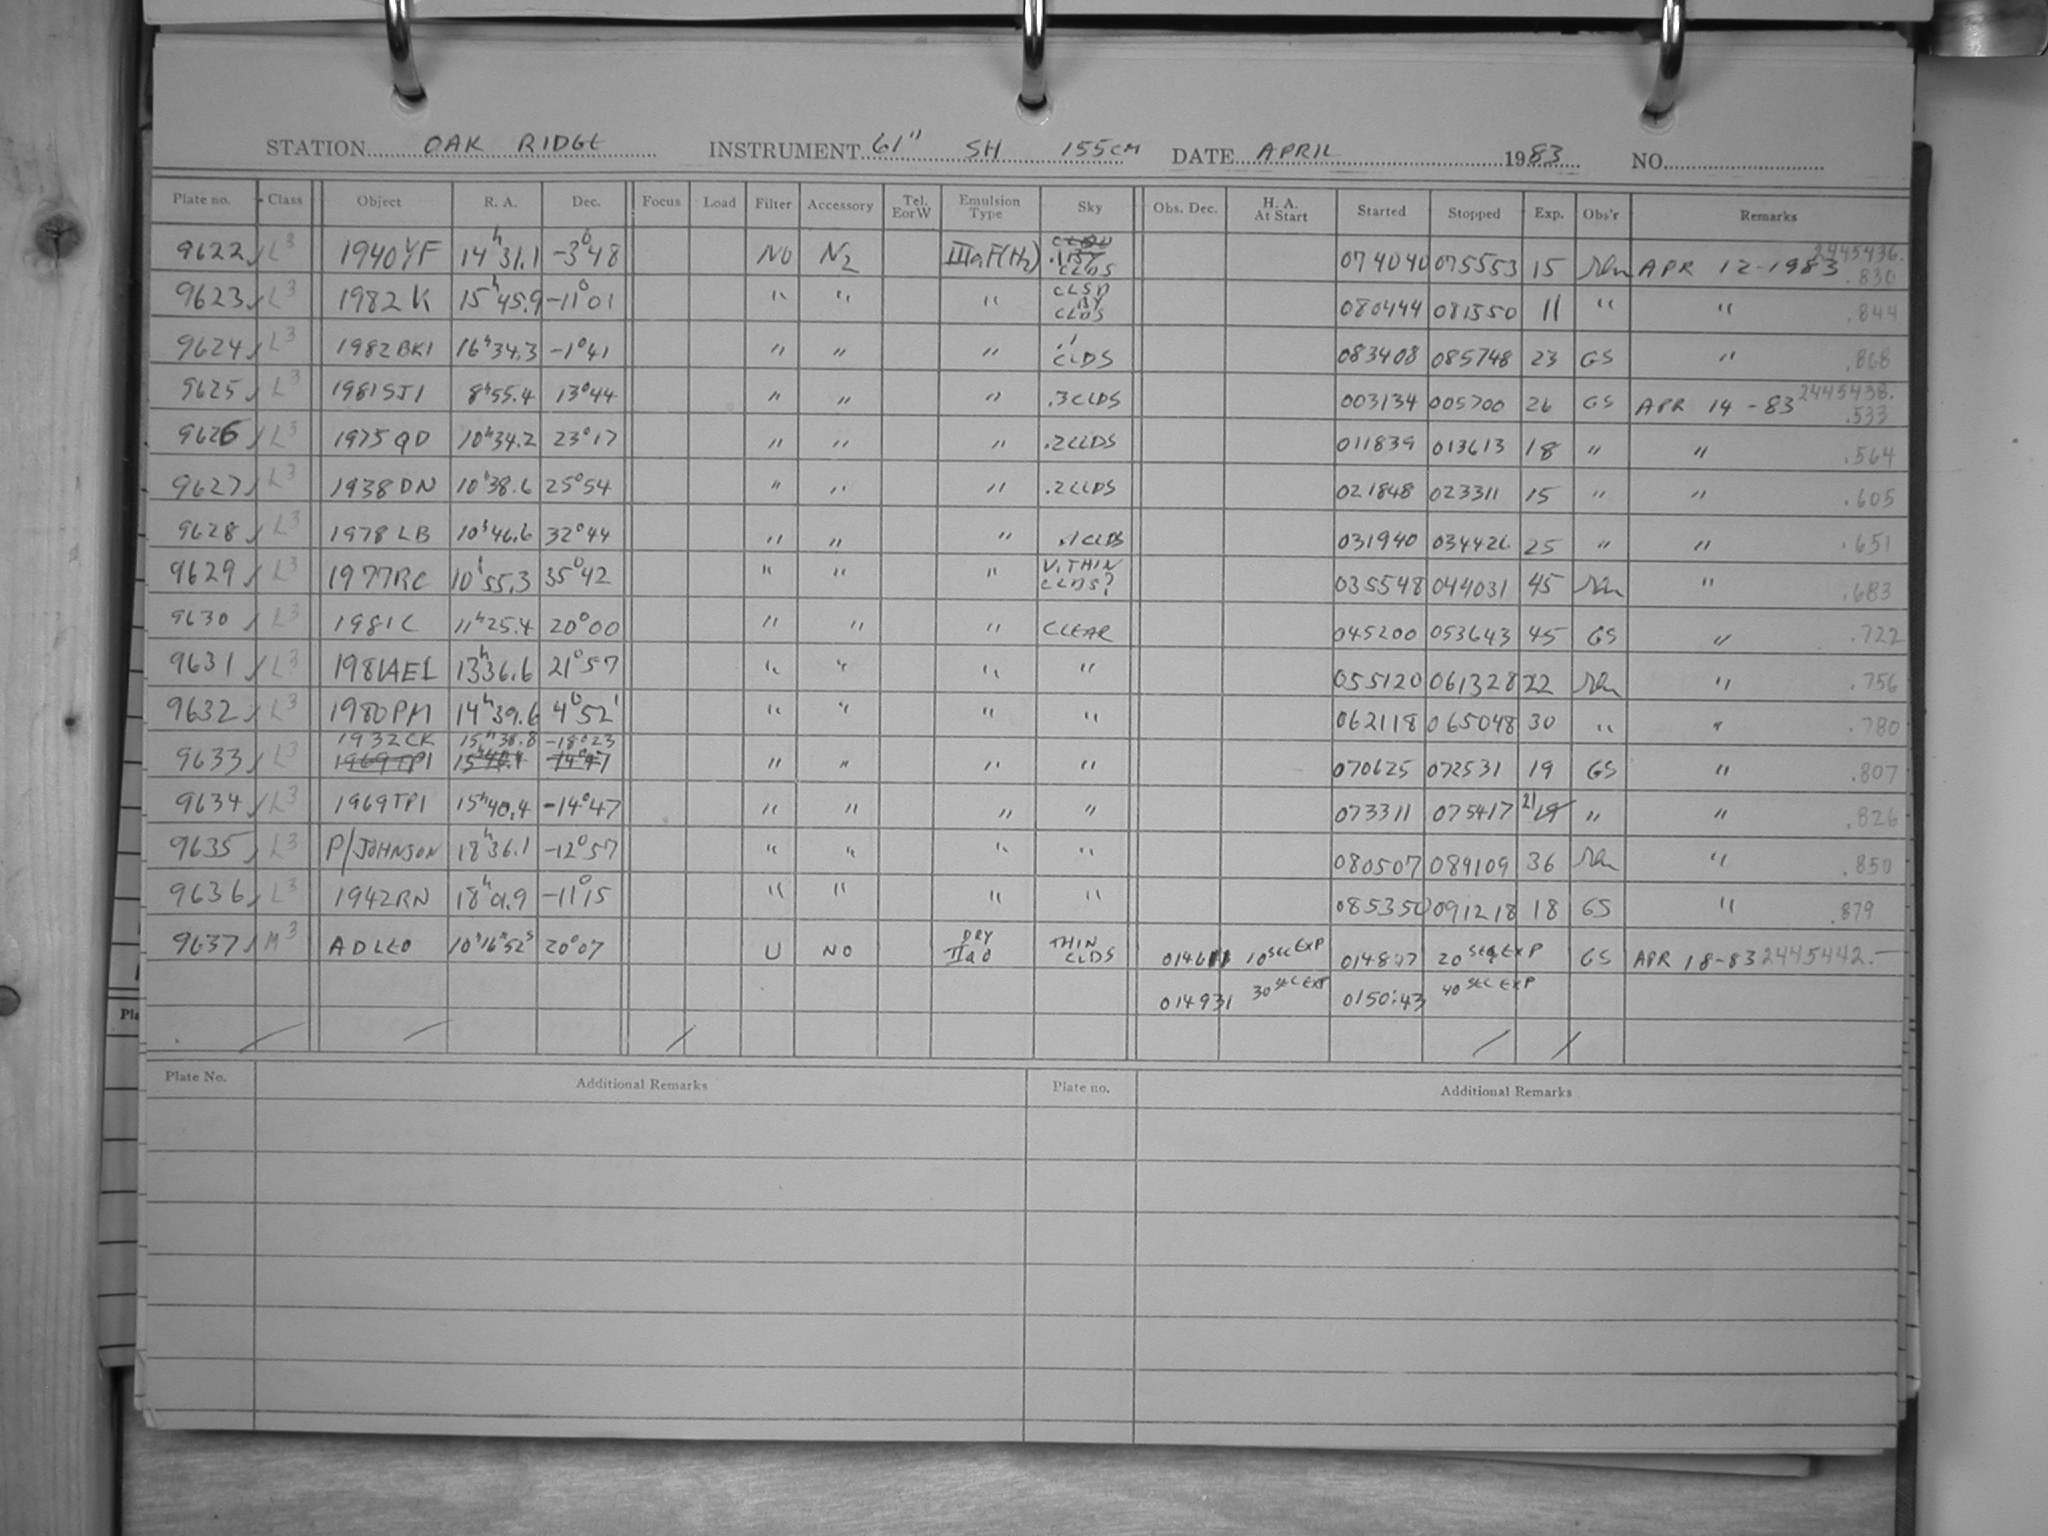 STATION OAK RIDGE INSTRUMENT 61" SH 155CM DATE APRIL 1983 NO.
Plate no. Class Object R. A. Dec. Focus Load Filter Accessory Tel. E or W Emulsion Type Sky Obs. Dec. H. A. At Start Started Stopped Exp. Obs'r Remarks
9622 L3 1940YF 14h31.1 -3°48 NO N2 IIIaF(H2) CLDS 074040 075553 15 APR 12-1983 2445436. .830
9623 L3 1982K 15h45.9 -11°01 " " " CLSD BY CLDS 080444 081550 11 " " .844
9624 L3 1982BK1 16h34.3 -1°41 " " " " CLDS 083408 085748 23 GS " .868
9625 L3 1981SJ1 8h55.4 13°44 " " " .3CLDS 003134 005700 26 GS APR 14-83 2445438. .533
9626 L3 1975QD 10h34.2 23°17 " " " .2CLDS 011839 013613 18 " " .564
9627 L3 1938DN 10h38.6 25°54 " " " .2CLDS 021848 023311 15 " " .605
9628 L3 1978LB 10h46.6 32°44 " " " .1CLDS 031940 034426 25 " " .651
9629 L3 1977RC 10h55.3 35°42 " " " V.THIN CLDS? 035548 044031 45 " .683
9630 L3 1981C 11h25.4 20°00 " " " CLEAR 045200 053643 45 GS " .722
9631 L3 1981AE1 13h36.6 21°57 " " " " 055120 061328 22 " .756
9632 L3 1980PM 14h39.6 4°52' " " " " 062118 065048 30 " " .780
9633 L3 1932CK 15h38.8 -18°23 " " " " 070625 072531 19 GS " .807
1969TP1 15h40.4 -14°47
9634 L3 1969TP1 15h40.4 -14°47 " " " " 073311 075417 21 19 " " .826
9635 L3 P/JOHNSON 18h36.1 -12°57 " " " " 080507 084109 36 " .850
9636 L3 1942RN 18h01.9 -11°15 " " " " 085350 091218 18 GS " .879
9637 M3 AD LEO 10h16m52s 20°07 U NO DRY IIaO THIN CLDS 10 SEC EXP 20 SEC EXP GS APR 18-83 2445442.-
014931 30 SEC EXP 0150:43 40 SEC EXP
Plate No. Additional Remarks Plate no. Additional Remarks